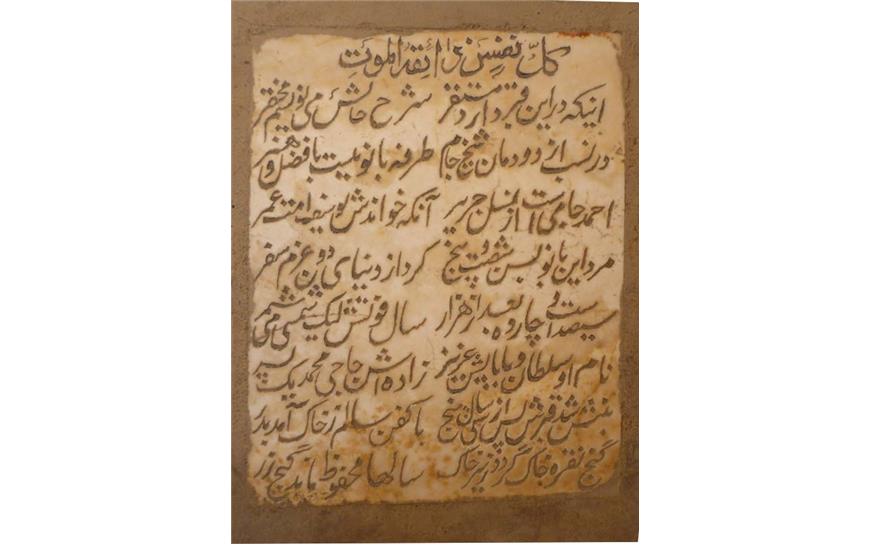 کلّ نفسٍ ذائقة الموت
اینکه در این قبر دارد مستقر شرح حالش می نویسم مختصر
در نسب از دودمان شیخ جام طرفه بانوئیست با فضل و هنر
احمد جامی است از نسل جریر آنکه خواندش یوسف امت عمر
مرد این بانو بسن شصت و پنج کرد از دنیای دون عزم سفر
سیصد است و چار و ده بعد از هزار سال فوتش لیک شمسی می شمر
نام او سلطان و بابایش عزیز زاده اش حاجی محمد یک پسر
نبش شد قبرش پس از سی سال و پنج با کفن سالم ز خاک آمد بدر
گنج نقره خاک گردد زیر خاک سالها محفوظ ماند گنج زر